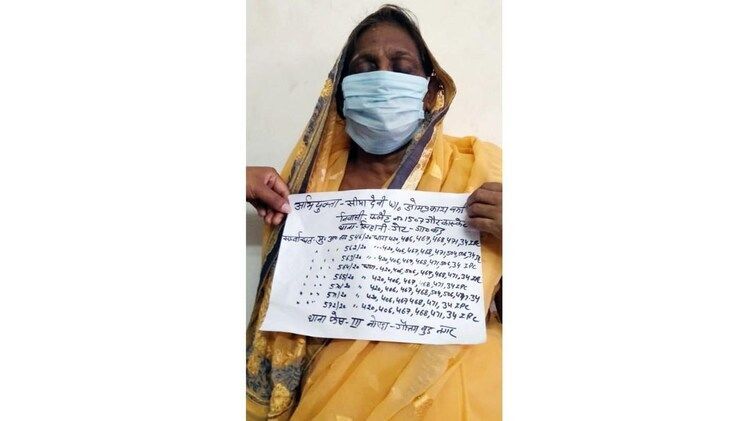 अभियुक्ता - सीमा देवी w/o ओमप्रकाश वर्मा
निवासी - फ्लैट नं 1507 गौर
थाना - सिहानी गेट - गा०बाद
मु० अ० सं 546/20 धारा 420, 406, 467, 468, 471, 34 IPC
" " " 562/20 " 420, 406, 467, 468, 471, 504, 506, 34 IPC
" " " 563/20 " 420, 406, 467, 468, 471, 34 IPC
" " " 564/20 धारा 420, 406, 506, 467, 468, 471, 34 IPC
" " " 565/20 " 420, 406, 467, 468, 471, 34 IPC
" " " 570/20 " 420, 406, 467, 468, 504, 506, 471, 34
" " " 571/20 " 420, 406, 467, 468, 471, 34 IPC
" " " 572/20 " 420, 406, 467, 468, 471, 34 IPC
थाना फेस - III नोएडा - गौतम बुद्ध नगर